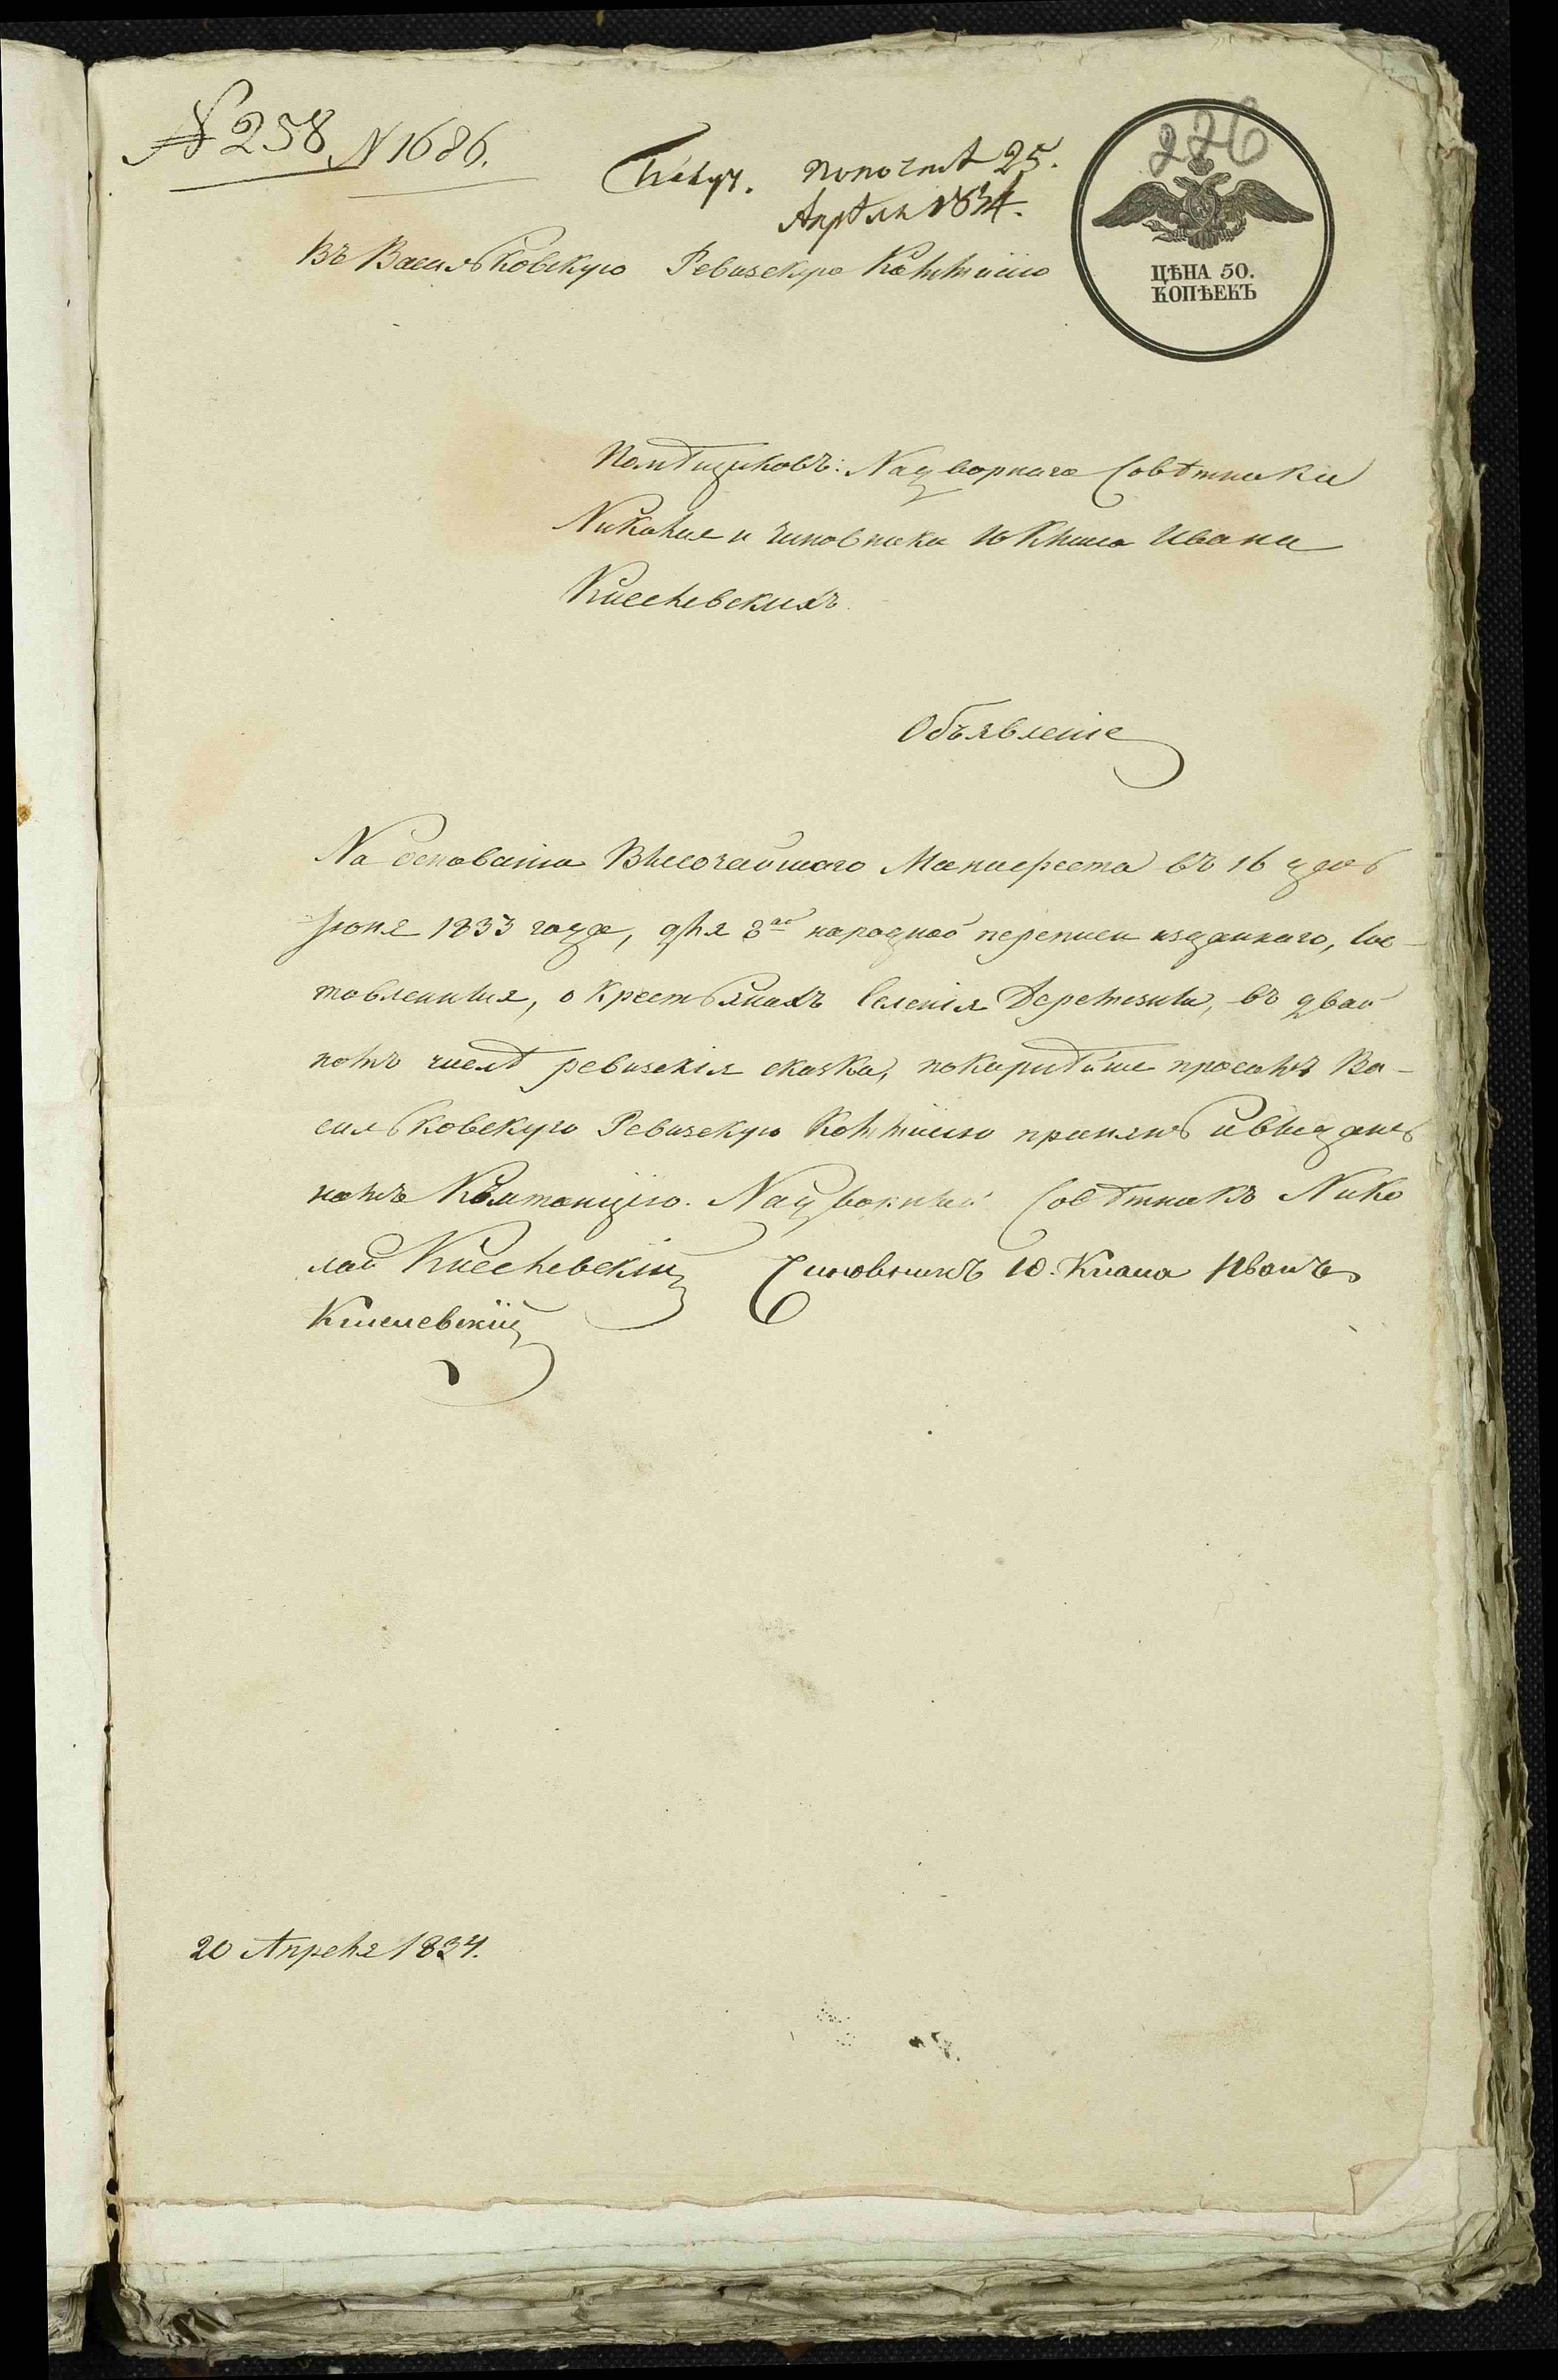 № 258 N 1686.
226
Получ. пополуд 25.
Апрѣля 1834.
ЦѢНА 50.
КОПѢЕКЪ
Въ Васильковскую Ревизскую Коммисію
Помѣщиковъ: Надворнаго Совѣтника
Николая и чиновника 10 Класа Ивана
Киселевскихъ
Объявленіе
На основаніи Высочайшаго Манифеста въ 16 день
Іюня 1833 года, для 8ой народной переписи изданнаго, сос-
тавленныя, о крестьянахъ селенія Деремезны, въ двой
номъ числѣ ревизскія сказки, покорнѣйше просимъ Ва-
сильковскую Ревизскую Коммисію принять и выдать
намъ Квитанцію. Надворный Совѣтникъ Нико
лай Киселевскій Чиновникъ 10. Класа Иванъ
Киселевскій
20 Апреля 1834.